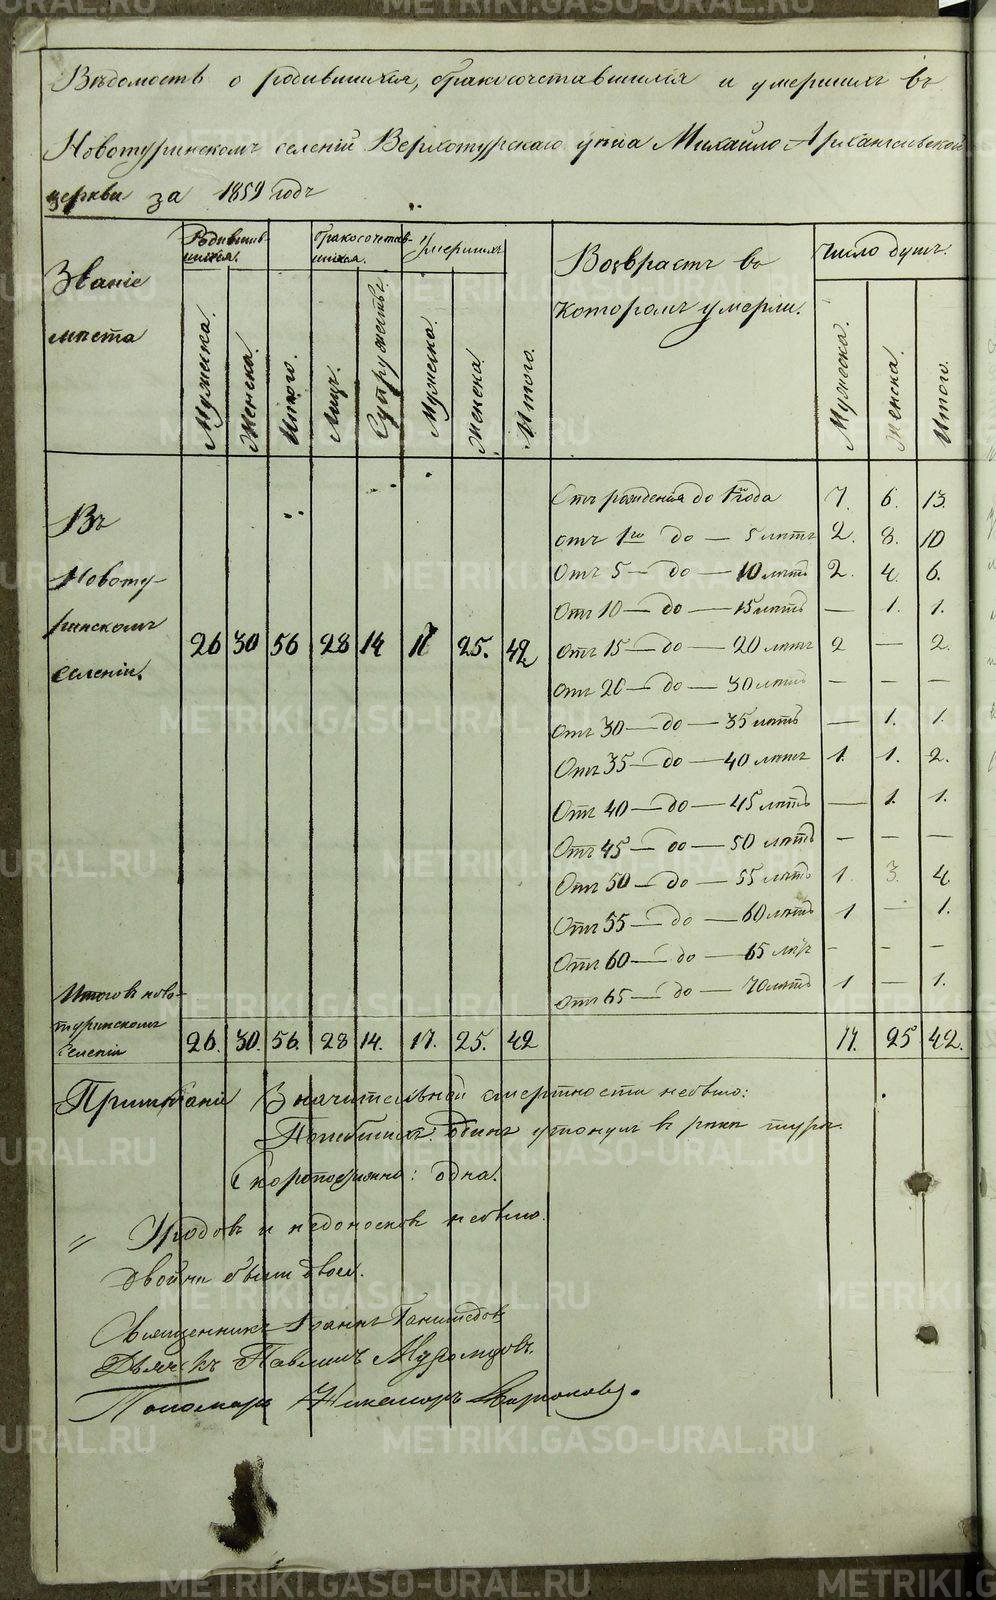 Вѣдомость о родившихся, бракосочетавшихся и умершихъ въ
Новотуринскомъ селеніи Верхотурскаго уѣзда Михайло-Архангельской
церкви за 1859 годъ
Званіе мѣста
Родившихся.
Бракосочетавшихся.
Умершихъ
Возврастъ въ которомъ умерли.
Число душъ.
Мужеска. Женска. Итого. Лицъ. Супружествъ. Мужеска. Женска. Итого. Мужеска. Женска. Итого.
Въ Новотуринскомъ селеніи. 26 30 56 28 14 17 25. 42
Отъ рожденія до 1го года 7. 6. 13.
отъ 1го до — 5 лѣтъ 2. 8. 10
Отъ 5 — до — 10 лѣтъ 2. 4. 6.
Отъ 10 — до — 15 лѣтъ — 1. 1.
Отъ 15 — до — 20 лѣтъ 2 — 2.
Отъ 20 — до — 30 лѣтъ — — —
Отъ 30 — до — 35 лѣтъ — 1. 1.
Отъ 35 — до — 40 лѣтъ 1. 1. 2.
Отъ 40 — до — 45 лѣтъ — 1. 1.
Отъ 45 — до — 50 лѣтъ — — —
Отъ 50 — до — 55 лѣтъ 1. 3. 4.
Отъ 55 — до — 60 лѣтъ 1 — 1.
Отъ 60 — до — 65 лѣтъ — — —
Отъ 65 — до — 70 лѣтъ 1 — 1.
Итого въ Новотуринскомъ селеніи 26. 30. 56. 28 14. 17. 25. 42 17. 25 42.
Примѣчаніе Значительной смертности небыло:
Погибшихъ: Одинъ утонулъ въ рѣкѣ Турѣ.
Скоропостижно: одна.
" Уродовъ и недоносковъ небыло.
Двойни были двои.
Священникъ Іоаннъ
Дьячекъ Павлинъ
Пономарь Никаноръ
METRIKI.GASO-URAL.RU